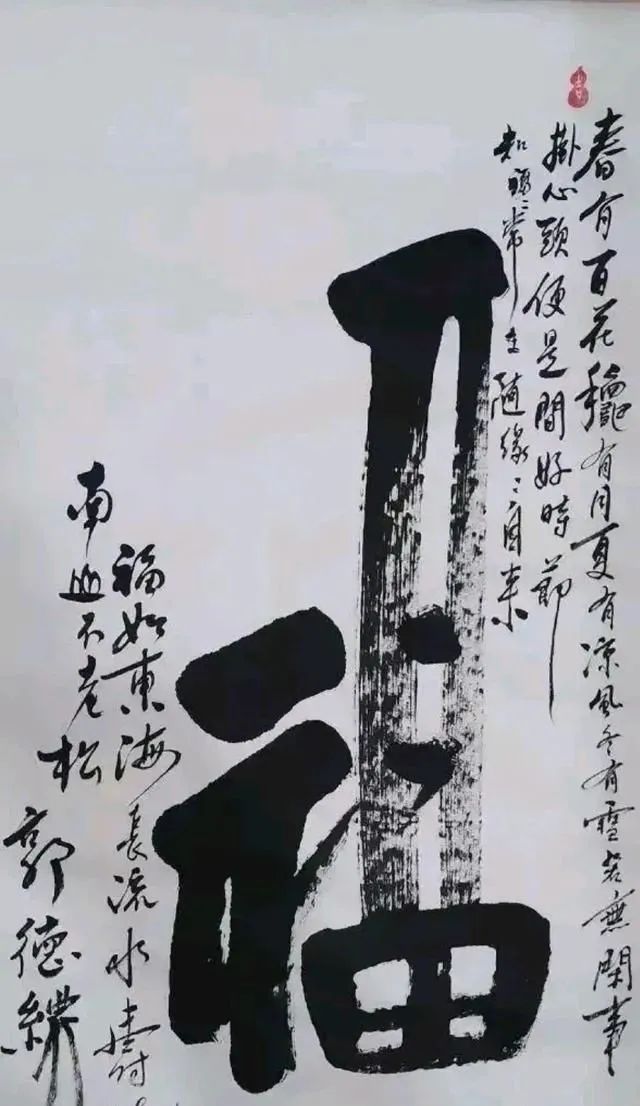 春有百花龝有月夏有凉風冬有雪若無閑事
掛心頭便是間好時節
知福〻常在隨緣〻自来
福
福如東海長流水壽比
南山不老松
郭德綱